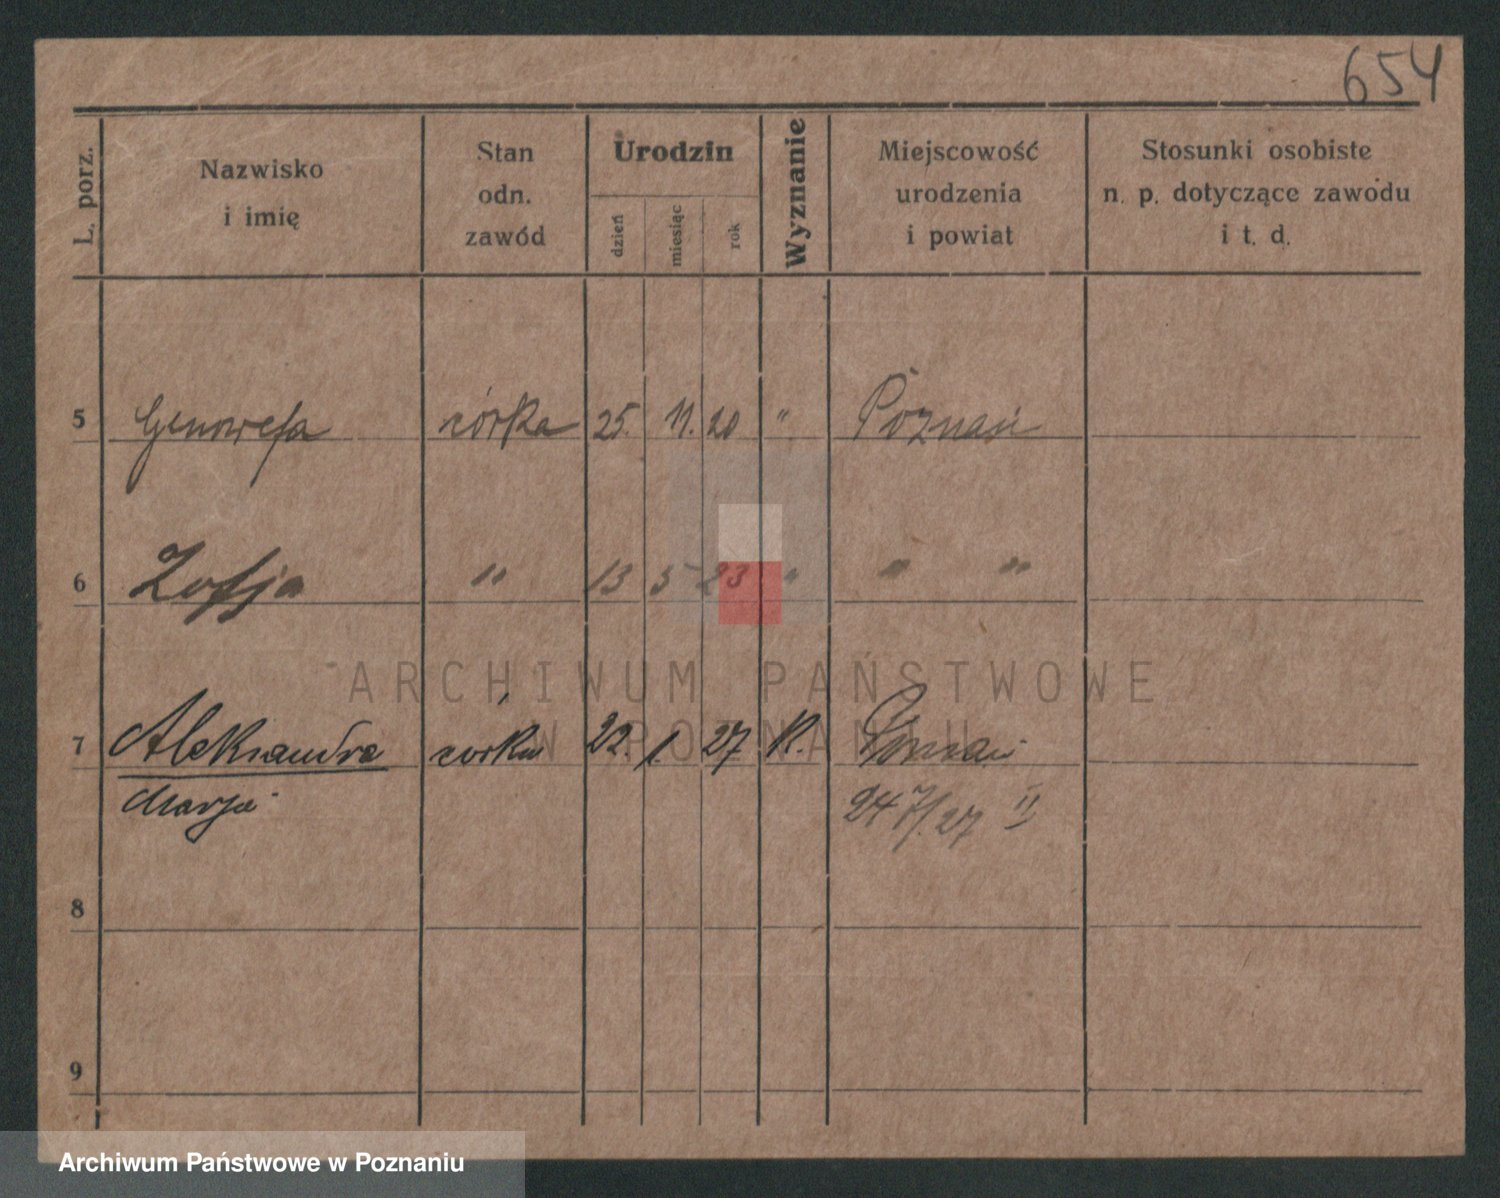 654
L. porz.
Nazwisko
i imię
Stan
odn.
zawód
Urodzin
dzień
miesiąc
rok
Wyznanie
Miejscowość
urodzenia
i powiat
Stosunki osobiste
n. p. dotyczące zawodu
i t. d.
5 Genowefa córka 25. 11. 20 " Poznań
6 Zofja " 13 5 23 " " "
ARCHIWUM PAŃSTWOWE
W POZNANIU
7 Aleksandra córka 22. 1. 27 K. Poznań
Marja 24 7/27 II
8
9
Archiwum Państwowe w Poznaniu